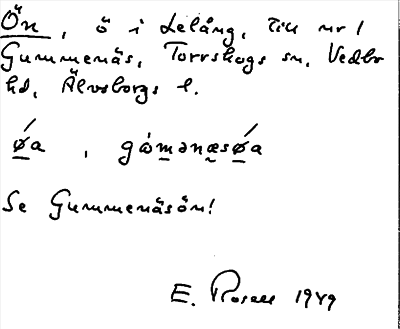 Ön, ö i Lelång, Till nr 1
Gummenäs, Torrskogs sn, Vedbo
hd, Älvsborgs l.
øa, gàmənæsøa
Se Gummenäsön!
E. Rosell 1949